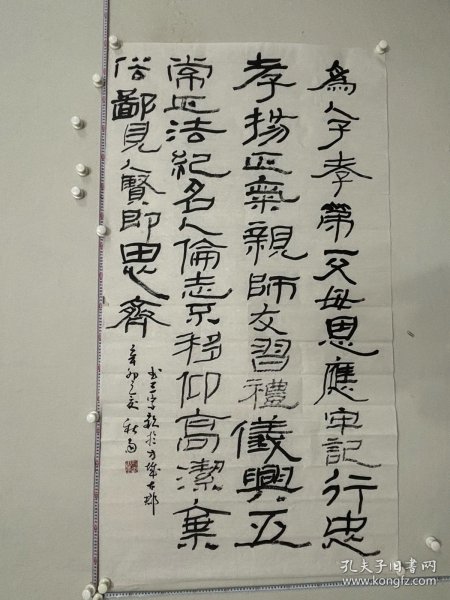 為人子孝第一父母恩應牢記行忠
孝揚正氣親師友習禮儀興五
常正法紀名人倫志不移仰高潔棄
俗鄙見人賢即思齊
辛卯之夏 秋雨
孔夫子旧书网
www.kongfz.com